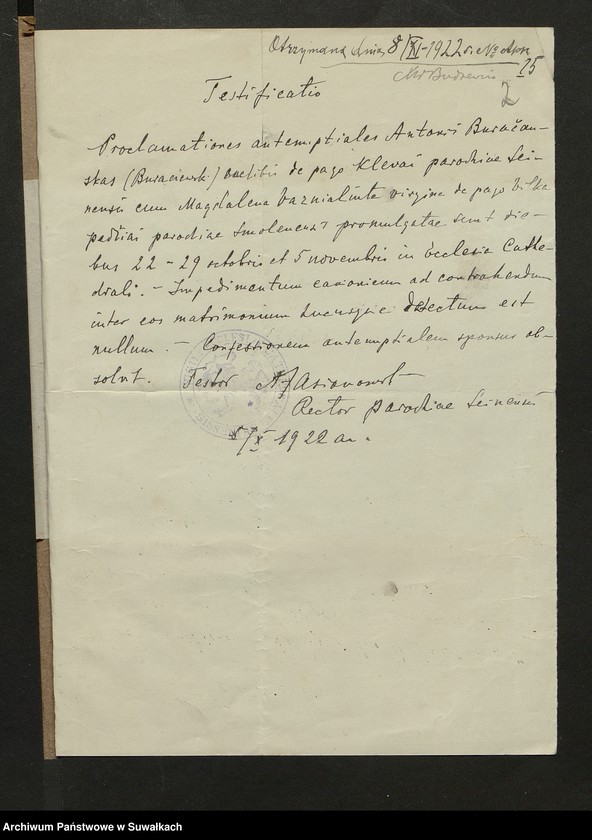 Otrzymana dnia 8/XI-1922 r. No
15
2
Testificatio
Proclamationes antenuptiales Antonii Buračau-
skas (Buraciewski) coelibis de pago Klevai parochiae Sei-
nensis cum Magdalena Vaznialiute virgine de pago Vilka
padžiai parochiae Smolenensis promulgatae sunt die-
bus 22 - 29 octobris et 5 novembris in Ecclesia Cathe-
drali. - Impedimentum canonicum ad contrahendum
inter eos matrimonium hucusque detectum est
nullum. - Confessionem antenuptialem sponsus ab-
solvit. Testor
Rector parochiae Seinensis
1922 an.
Archiwum Państwowe w Suwałkach